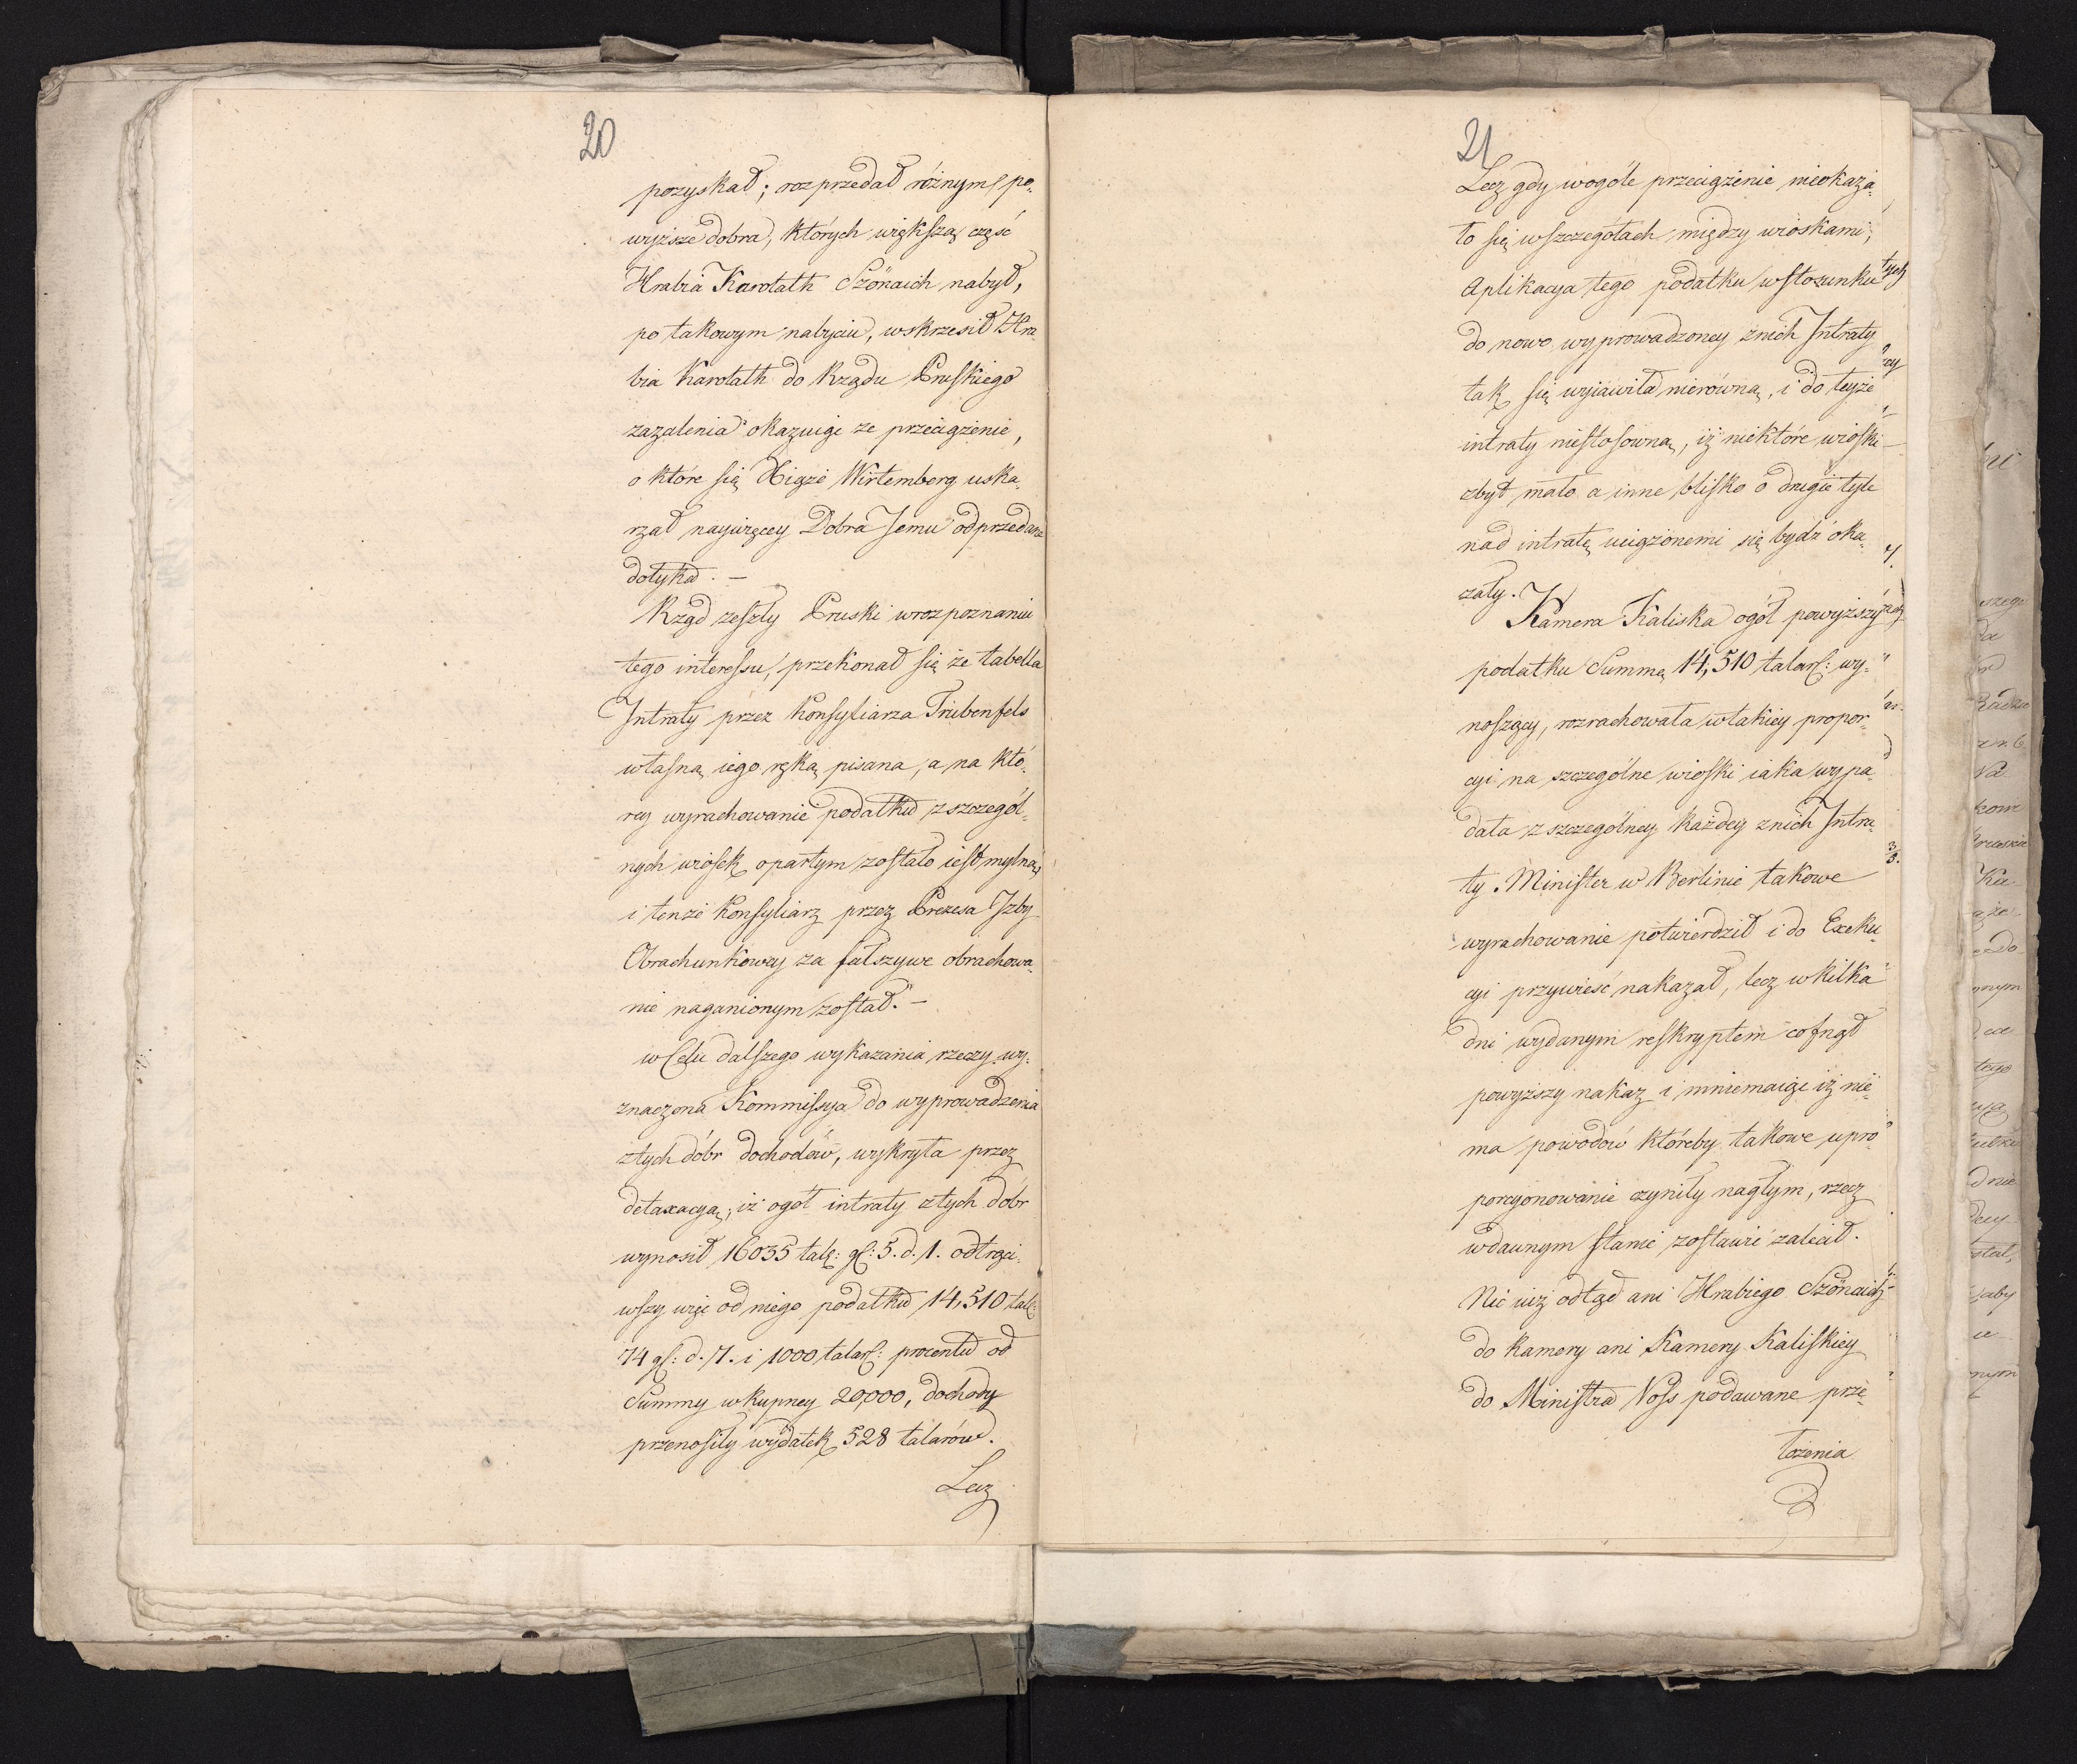 20
pozyskał; rozprzedał różnym po-
wyższe dobra, których większą część
Hrabia Karolath Szönaich nabył,
po takowym nabyciu, wskrzesił Hra-
bia Karolath do Rządu Pruskiego
zazalenia okazuiąc ze przeciązenie,
o które się Xiąze Wirtemberg uska-
rzał naywięcey Dobra Jemu odprzedane
dotyka. —
Rząd zeszły Pruski w rozpoznaniu
tego interessu, przekonał się że tabella
Intraty przez Konsyliarza Triebenfels
własną iego ręką pisana, a na któ-
rey wyrachowanie podatku z szczegól-
nych wiosek opartym zostało iest mylną,
i tenże Konsyliarz przez Prezesa Izby
Obrachunkowey za fałszywe obrachowa-
nie naganionym został. —
w Celu dalszego wykazania rzeczy wy-
znaczona Kommissya do wyprowadzenia
z tych dóbr dochodów, wykryła przez
detaxacyą, iż ogół intraty z tych dóbr
wynosił 16035 tal: gl: 5. d. 1. odtrąci-
wszy więc od niego podatku 14,510 tal:
74 gl: d. 7. i 1000 talar: procentu od
Summy wkupney 20,000, dochody
przenosiły wydatek 528 talarów.
Lecz
21
Lecz gdy wogóle przeciązenie nieokaza-
ło się w szczegółach między wioskami,
Aplikacya tego podatku w stosunku
do nowo wyprowadzoney znich Intraty
tak się wyiawiła nierówną, i do teyże
intraty niestosowną, iż niektóre wioski
zbyt mało a inne blisko o drugie tyle
nad intratę uciązonemi się bydź oka-
zały.
Kamera Kaliska ogół powyższy
podatku Summę 14,510 talar: wy-
noszący, rozrachowała w takiey propor-
cyi na szczególne wioski iaka wypa-
dała z szczególney każdey znich Intra-
ty. Minister w Berlinie takowe
wyrachowanie potwierdził i do Exeku-
cyi przywieść nakazał, lecz w kilka
dni wydanym reskryptem cofnął
powyższy nakaz i mniemaiąc iż nie
ma powodów któreby takowe upro-
porcyonowanie czyniły nagłym, rzecz
w dawnym stanie zostawić zalecił.
Nic iuż odtąd ani Hrabiego Szönaich
do Kamery ani Kamery Kaliskiey
do Ministra Voss podawane prze-
łożenia